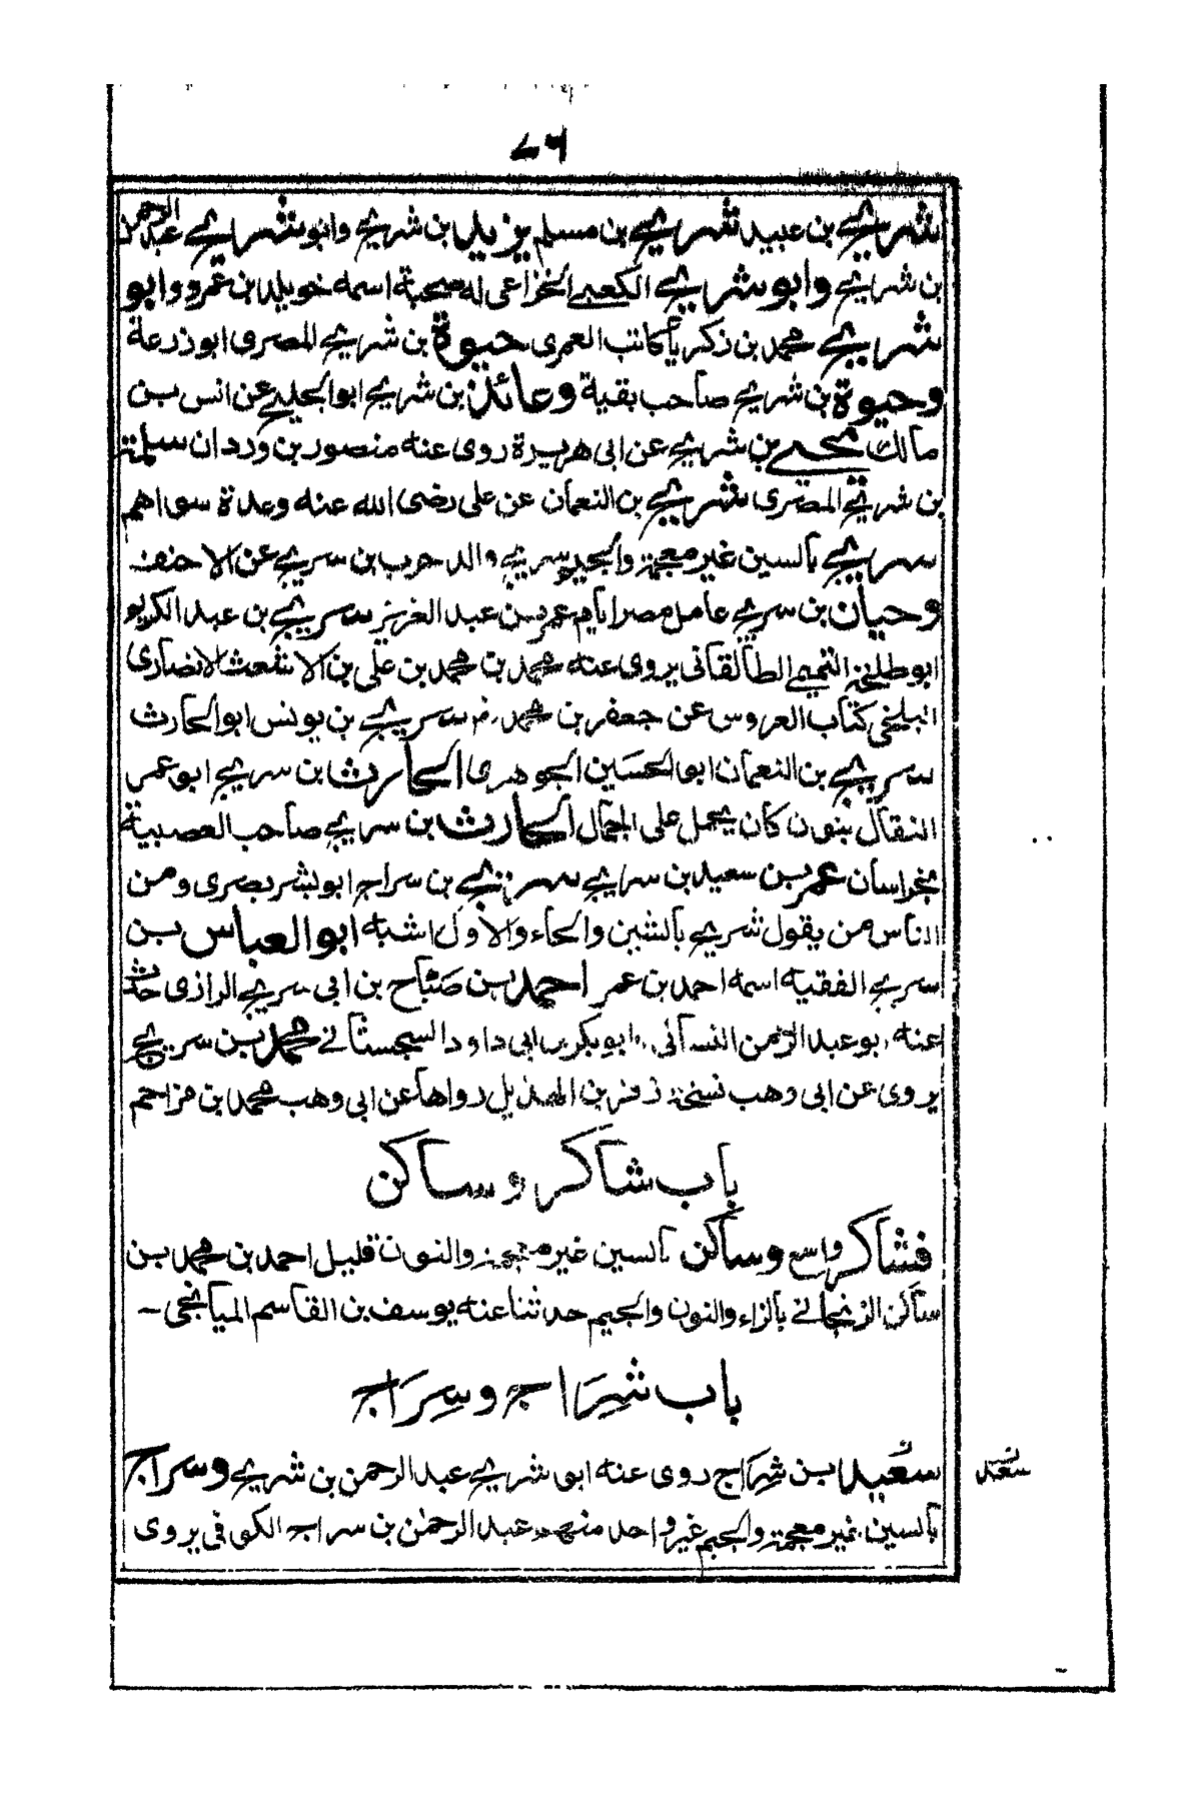 ٧٦
شريح بن عبيد شريح بن مسلم يزيد بن شريح وابو شريح عبد الرحمن
بن شريح وابو شريح الكعبي الخزاعى له صحبة اسمه خويلد بن عمرو وابو
شريح محمد بن زكريا كاتب العمرى حيوة بن شريح المصرى ابو زرعة
وحيوة بن شريح صاحب بقية وعائذ بن شريح ابو الجليح عن انس بن
مالك بن شريح عن ابى هريرة روى عنه منصور بن وردان سلمة
بن شريح المصرى شريح بن النعمان عن على رضى الله عنه وعدة سواهم
سريج بالسين غير معجمة والجيم سريج والد حرب بن سريج عن الاحنف
وحيان بن سريج عامل مصر ايام عمر بن عبد العزيز سريج بن عبد الكريم
ابو طلحة التميمي الطالقانى يروى عنه محمد بن محمد بن على بن الاشعث الانصارى
البلخى كتاب العروس عن جعفر بن محمد رض سريج بن يونس ابو الحارث
سريج بن النعمان ابو الحسين الجوهرى الحارث بن سريج ابو عمر
النقال بنون كان يحمل على الجمال الحارث بن سريج صاحب العصبية
بخراسان عمر بن سعيد بن سريج بن سراج ابو بشر بصرى ومن
الناس من يقول شريح بالشين والحاء والاول اشبه ابو العباس بن
سريج الفقيه اسمه احمد بن عمر احمد بن صباح بن ابى سريج الرازى حدث
عنه ابو عبد الرحمن النسائى وابو بكر بن ابى داود السجستانے محمد بن سريج
يروى عن ابى وهب نسخة زفر بن الهذيل رواها عن ابى وهب محمد بن مزاحم
باب شاكر وساكن
فشاكر واسع وساكن بالسين غير معجمة والنون قليل احمد بن محمد بن
ساكن الزنجانے بالزاء والنون والجيم حدثنا عنه يوسف بن القاسم الميانجى ـ
باب شِرَاج وسِرَاج
سعيد بن شِرَاج روى عنه ابى شريح عبد الرحمن بن شريح وسراج
بالسين غير معجمة والجيم غير واحد منهم عبد الرحمٰن بن سراج الكوفى يروى
سعيد